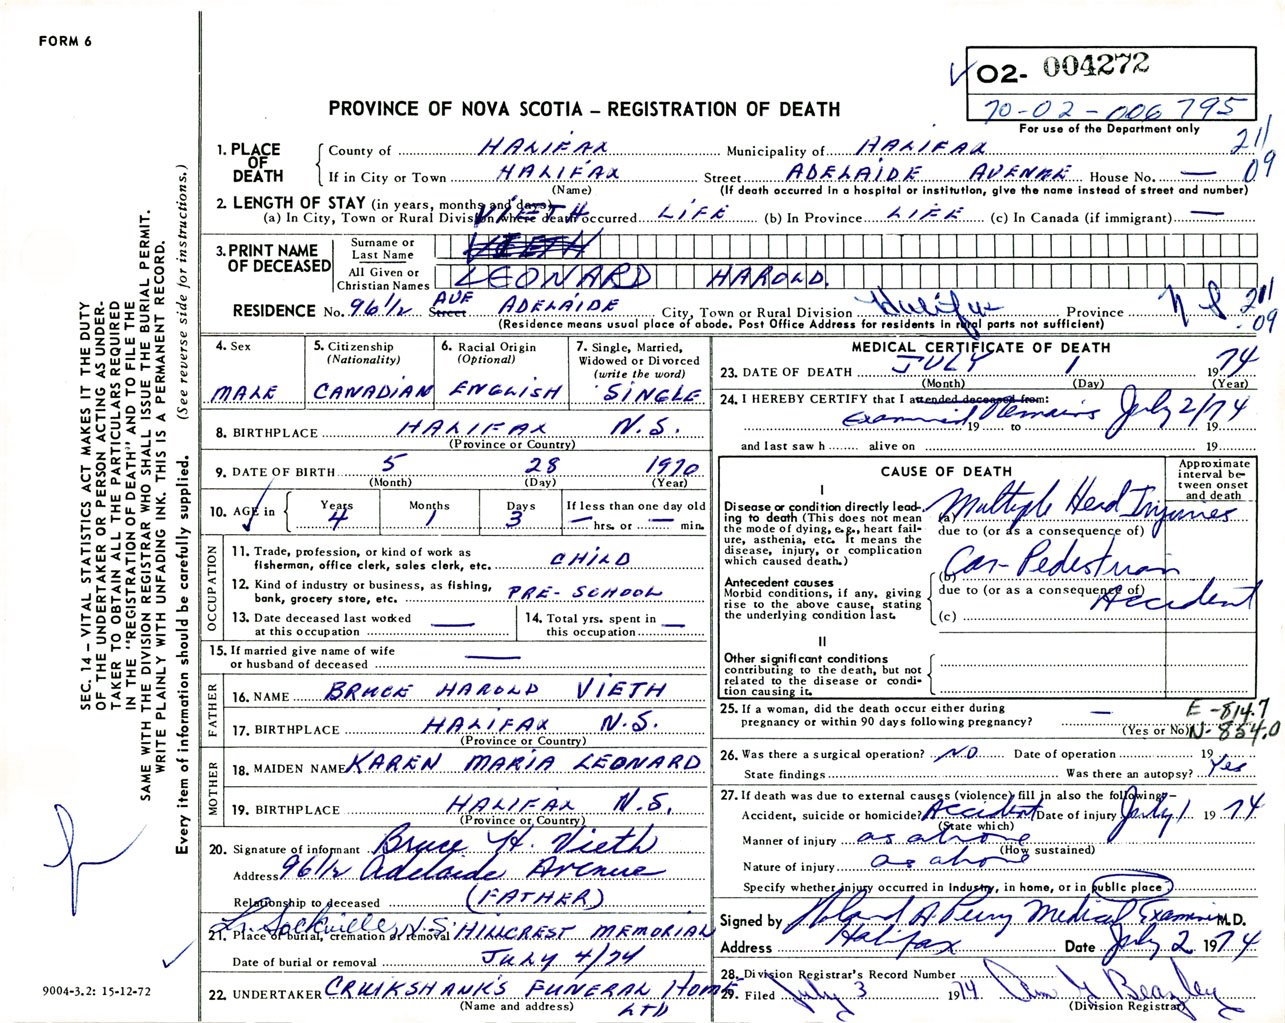 FORM 6
O2- 004272
70-02-006795
For use of the Department only
PROVINCE OF NOVA SCOTIA – REGISTRATION OF DEATH
211
09
1. PLACE OF DEATH
County of HALIFAX Municipality of HALIFAX
If in City or Town HALIFAX Street ADELAIDE AVENUE House No. —
(Name) (If death occurred in a hospital or institution, give the name instead of street and number)
2. LENGTH OF STAY (in years, months and days)
(a) In City, Town or Rural Division where death occurred LIFE (b) In Province LIFE (c) In Canada (if immigrant) —
3. PRINT NAME OF DECEASED
Surname or Last Name VIETH
All Given or Christian Names LEONARD HAROLD.
RESIDENCE No. 96 1/2 Street AVE ADELAIDE City, Town or Rural Division Halifax Province N S 211 09
(Residence means usual place of abode. Post Office Address for residents in rural parts not sufficient)
4. Sex
MALE
5. Citizenship
(Nationality)
CANADIAN
6. Racial Origin
(Optional)
ENGLISH
7. Single, Married, Widowed or Divorced
(write the word)
SINGLE
8. BIRTHPLACE HALIFAX N.S.
(Province or Country)
9. DATE OF BIRTH 5 28 1970
(Month) (Day) (Year)
10. AGE in
Years Months Days If less than one day old
4 1 3 — hrs. or — min.
OCCUPATION
11. Trade, profession, or kind of work as fisherman, office clerk, sales clerk, etc. CHILD
12. Kind of industry or business, as fishing, bank, grocery store, etc. PRE-SCHOOL
13. Date deceased last worked at this occupation —
14. Total yrs. spent in this occupation —
15. If married give name of wife or husband of deceased —
FATHER
16. NAME BRUCE HAROLD VIETH
17. BIRTHPLACE HALIFAX N.S.
(Province or Country)
MOTHER
18. MAIDEN NAME KAREN MARIA LEONARD
19. BIRTHPLACE HALIFAX N.S.
(Province or Country)
20. Signature of informant Bruce H. Vieth
Address 96 1/2 Adelaide Avenue
Relationship to deceased (FATHER)
Lr. Sackville, N.S.
21. Place of burial, cremation or removal HILLCREST MEMORIAL
Date of burial or removal JULY 4/74
22. UNDERTAKER CRUIKSHANK'S FUNERAL HOME LTD
(Name and address)
MEDICAL CERTIFICATE OF DEATH
23. DATE OF DEATH JULY 1 1974
(Month) (Day) (Year)
24. I HEREBY CERTIFY that I attended deceased from:
Examined Remains July 2/74
19 to 19
and last saw h alive on 19
CAUSE OF DEATH
Approximate interval between onset and death
I
Disease or condition directly leading to death (This does not mean the mode of dying, e.g., heart failure, asthenia, etc. It means the disease, injury, or complication which caused death.)
(a) Multiple Head Injuries
due to (or as a consequence of)
Antecedent causes
Morbid conditions, if any, giving rise to the above cause, stating the underlying condition last.
(b) Car-Pedestrian
due to (or as a consequence of)
Accident
(c)
II
Other significant conditions contributing to the death, but not related to the disease or condition causing it.
25. If a woman, did the death occur either during pregnancy or within 90 days following pregnancy? —
(Yes or No)
E-814.7
N-854.0
26. Was there a surgical operation? NO Date of operation 19
State findings Was there an autopsy? Yes
27. If death was due to external causes (violence) fill in also the following:—
Accident, suicide or homicide? Accident Date of injury July 1 1974
(State which)
Manner of injury as above
(How sustained)
Nature of injury as above
Specify whether injury occurred in Industry, in home, or in public place
Signed by Roland A. Perry Medical Examiner M.D.
Address Halifax Date July 2 1974
28. Division Registrar's Record Number
29. Filed July 3 1974
(Division Registrar)
SEC. 14 – VITAL STATISTICS ACT MAKES IT THE DUTY
OF THE UNDERTAKER OR PERSON ACTING AS UNDER-
TAKER TO OBTAIN ALL THE PARTICULARS REQUIRED
IN THE "REGISTRATION OF DEATH" AND TO FILE THE
SAME WITH THE DIVISION REGISTRAR WHO SHALL ISSUE THE BURIAL PERMIT.
WRITE PLAINLY WITH UNFADING INK. THIS IS A PERMANENT RECORD.
Every item of information should be carefully supplied. (See reverse side for instructions.)
9004-3.2: 15-12-72